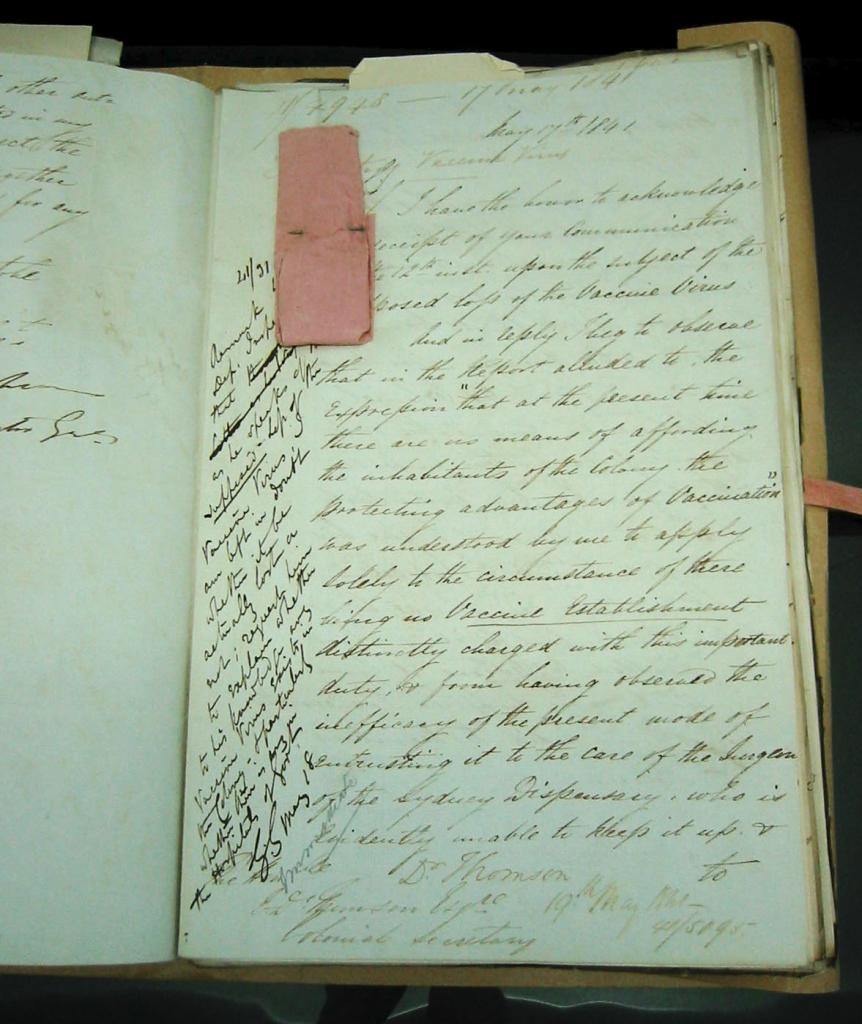 other
in my
the
for any
the
17 May 1841
May 17th 1841
of Vaccine Virus
I have the honor to acknowledge
receipt of your Communication
12th inst. upon the subject of the
posed loss of the Vaccine Virus
And in reply I beg to observe
that in the Report alluded to, the
Expression "that at the present time
there are no means of affording
the inhabitants of the Colony the
protecting advantages of Vaccination"
was understood by me to apply
solely to the circumstance of there
being no Vaccine Establishment
distinctly charged with this important
duty, & from having observed the
inefficacy of the present mode of
entrusting it to the care of the Surgeon
of the Sydney Dispensary, who is
evidently unable to keep it up. &
to
Dr Thomson
19th May
41/5095
Thomson Esqre
Colonial Secretary
41/31
Dep. Insp
that
as he speaks of
supposed loss of the
Vaccine Virus I
am left in doubt
whether it be
actually lost or
not; request him
to explain whether
to his knowledge any
Vaccine Virus exists in
the Colony & particularly
whether there is any in
the Hospitals of Govt
May 18
Immediate